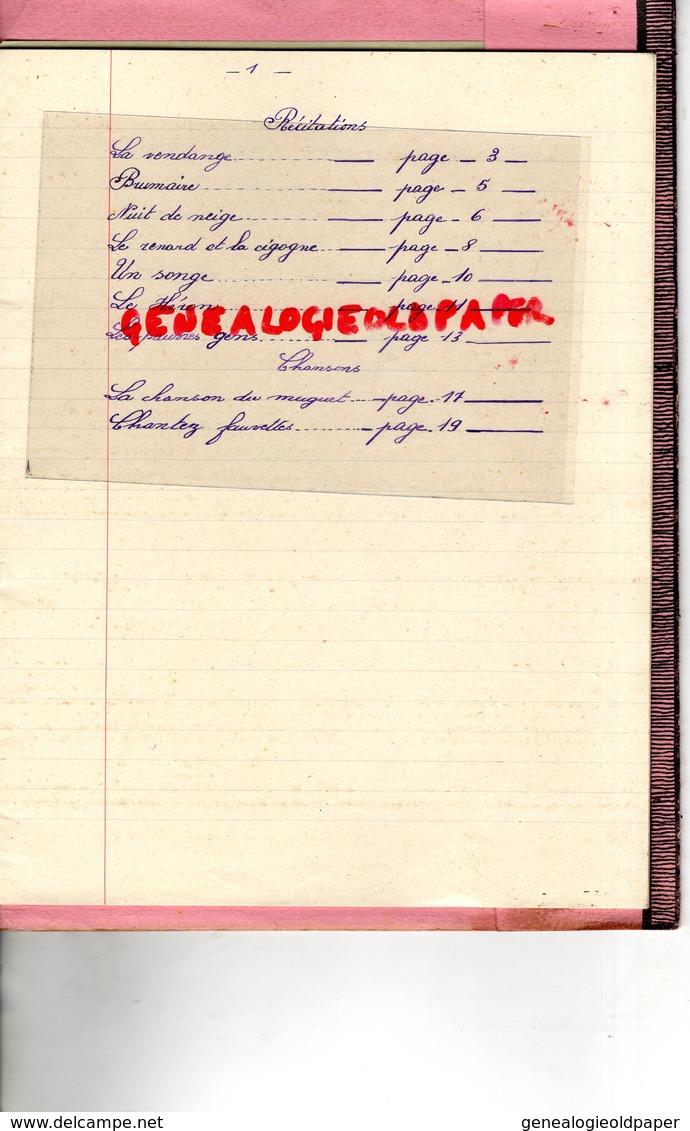 - 1 -
Récitations
La vendange page - 3 -
Brumaire page - 5
Nuit de neige page - 6
Le renard et la cigogne page - 8
Un songe page - 10
Le Héron page 11
GENEALOGIEOLDPAPER
Les pauvres gens page 13
Chansons
La chanson du muguet page 17
Chantez fauvettes page 19
delcampe.net
genealogieoldpaper